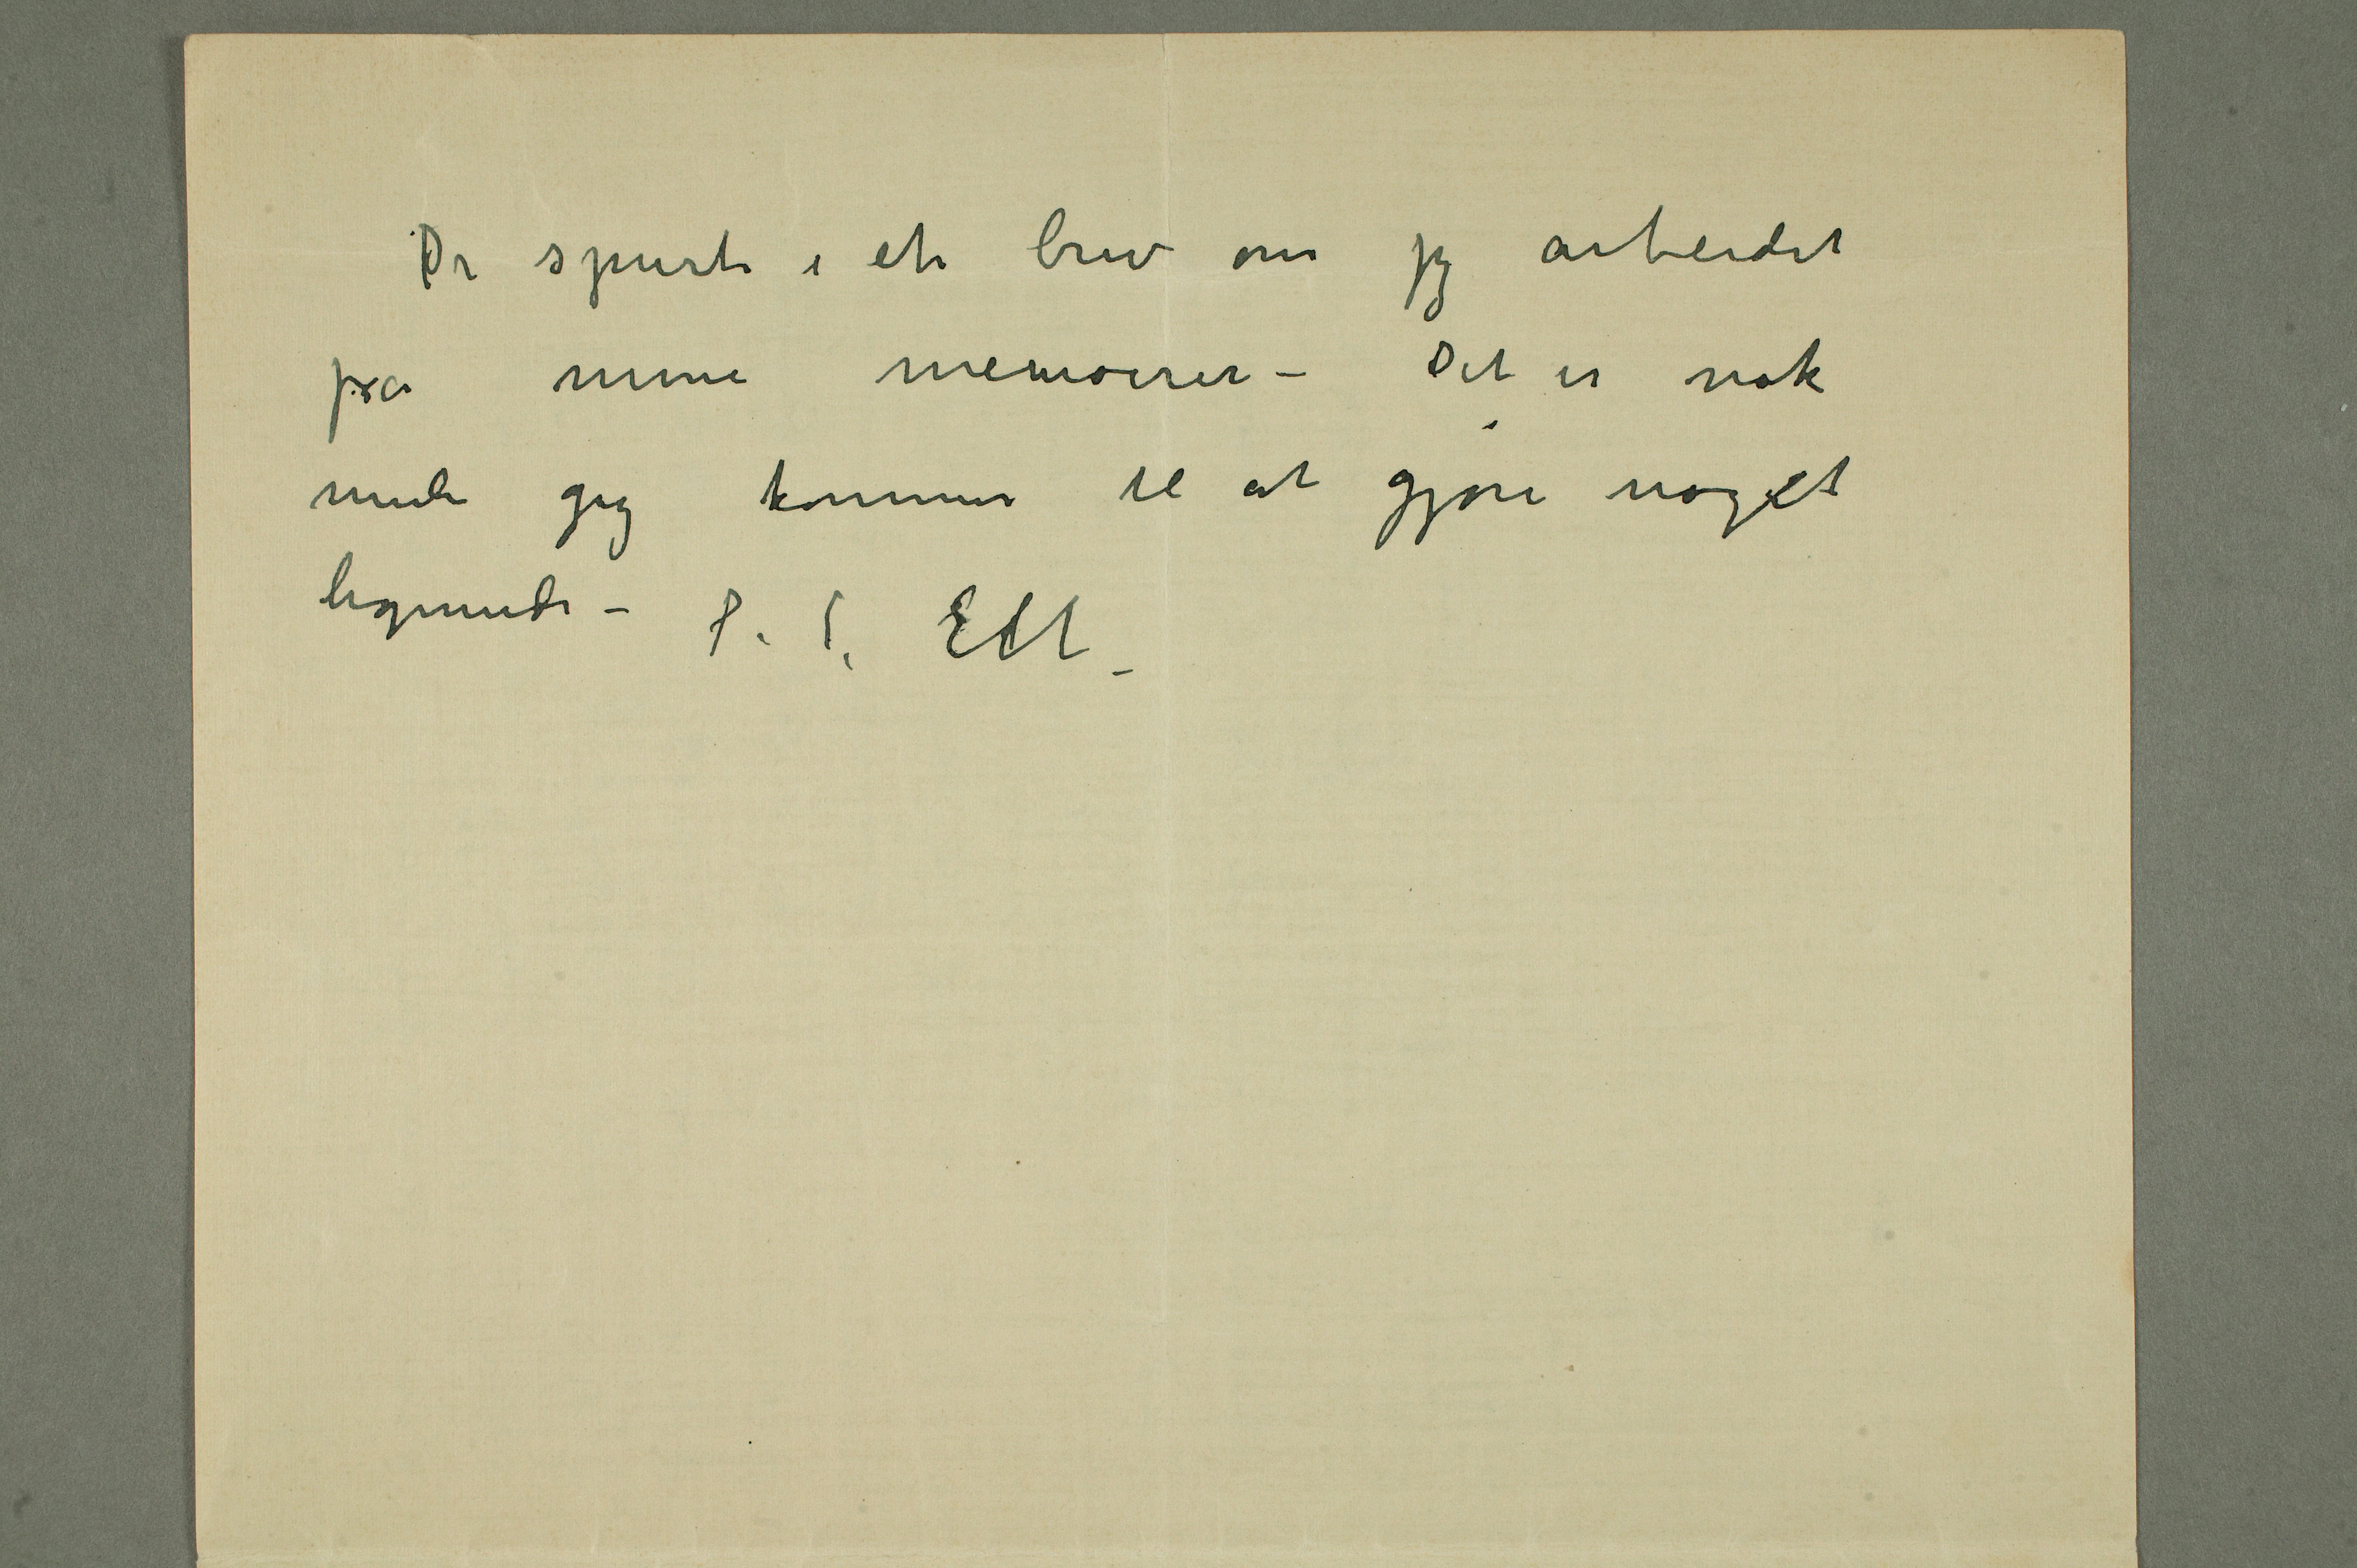 De spurte i ete brev om jeg arbeidet
på mine memoirer – Det er nok
mulig jeg kommer til at gjøre noget
lignende – D. f. EM –